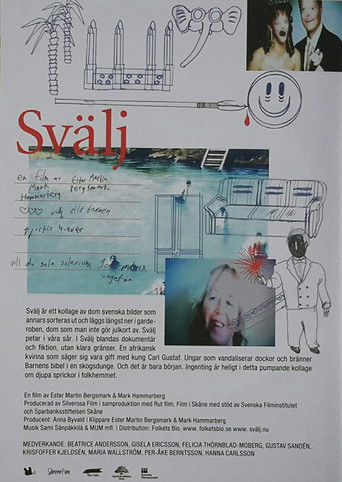 Svälj
en film av Ester Martin
Mark Bergsmark
Hammarberg
och
Svälj är ett kollage av dom svenska bilder som
annars sorteras ut och läggs längst ner i garde-
roben, dom som man gör julkort av. Svälj
petar i våra sår. I Svälj blandas dokumentär
och fiktion, utan klara gränser. En afrikansk
kvinna som säger sig vara gift med kung Carl Gustaf. Ungar som vandaliserar dockor och bränner
Barnens bibel i en skogsdunge. Och det är bara början. Ingenting är heligt i detta pumpande kollage
om djupa sprickor i folkhemmet.
En film av Ester Martin Bergsmark & Mark Hammarberg
Producerad av Silverosa Film i samproduktion med Rut film, Film i Skåne med stöd av Svenska Filminstitutet
och Sparbanksstiftelsen Skåne
Producent: Anna Byvald I Klippare Ester Martin Bergsmark & Mark Hammarberg
Musik Sami Sänpäkkilä & MUM mfl. I Distribution: Folkets Bio. www.folketsbio.se www.svälj.nu
MEDVERKANDE: BEATRICE ANDERSSON, GISELA ERICSSON, FELICIA THÖRNBLAD-MOBERG, GUSTAV SANDÉN,
KRISFOFFER KJELDSÉN, MARIA WALLSTRÖM, PER-ÅKE BERNTSSON, HANNA CARLSSON